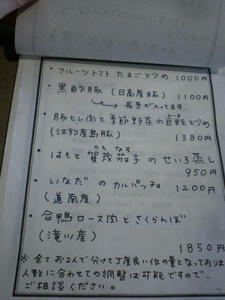 ・フルーツトマト たまご炒め 1000円
・黒酢豚（日高産豚） 1100円
長芋が入ってます
・豚ヒレ肉と季節野菜の豆鼓炒め
（江別産島豚） 1380円
かもなす
・はもと賀茂茄子のせいろ蒸し
950円
・いなだのカルパッチョ 1200円
（道南産）
・合鴨ロース肉とさくらんぼ
（滝川産）
1850円
※全てお2人で分けて丁度良い位の量となっております
人数に合わせての調整は可能ですので、
ご相談ください。